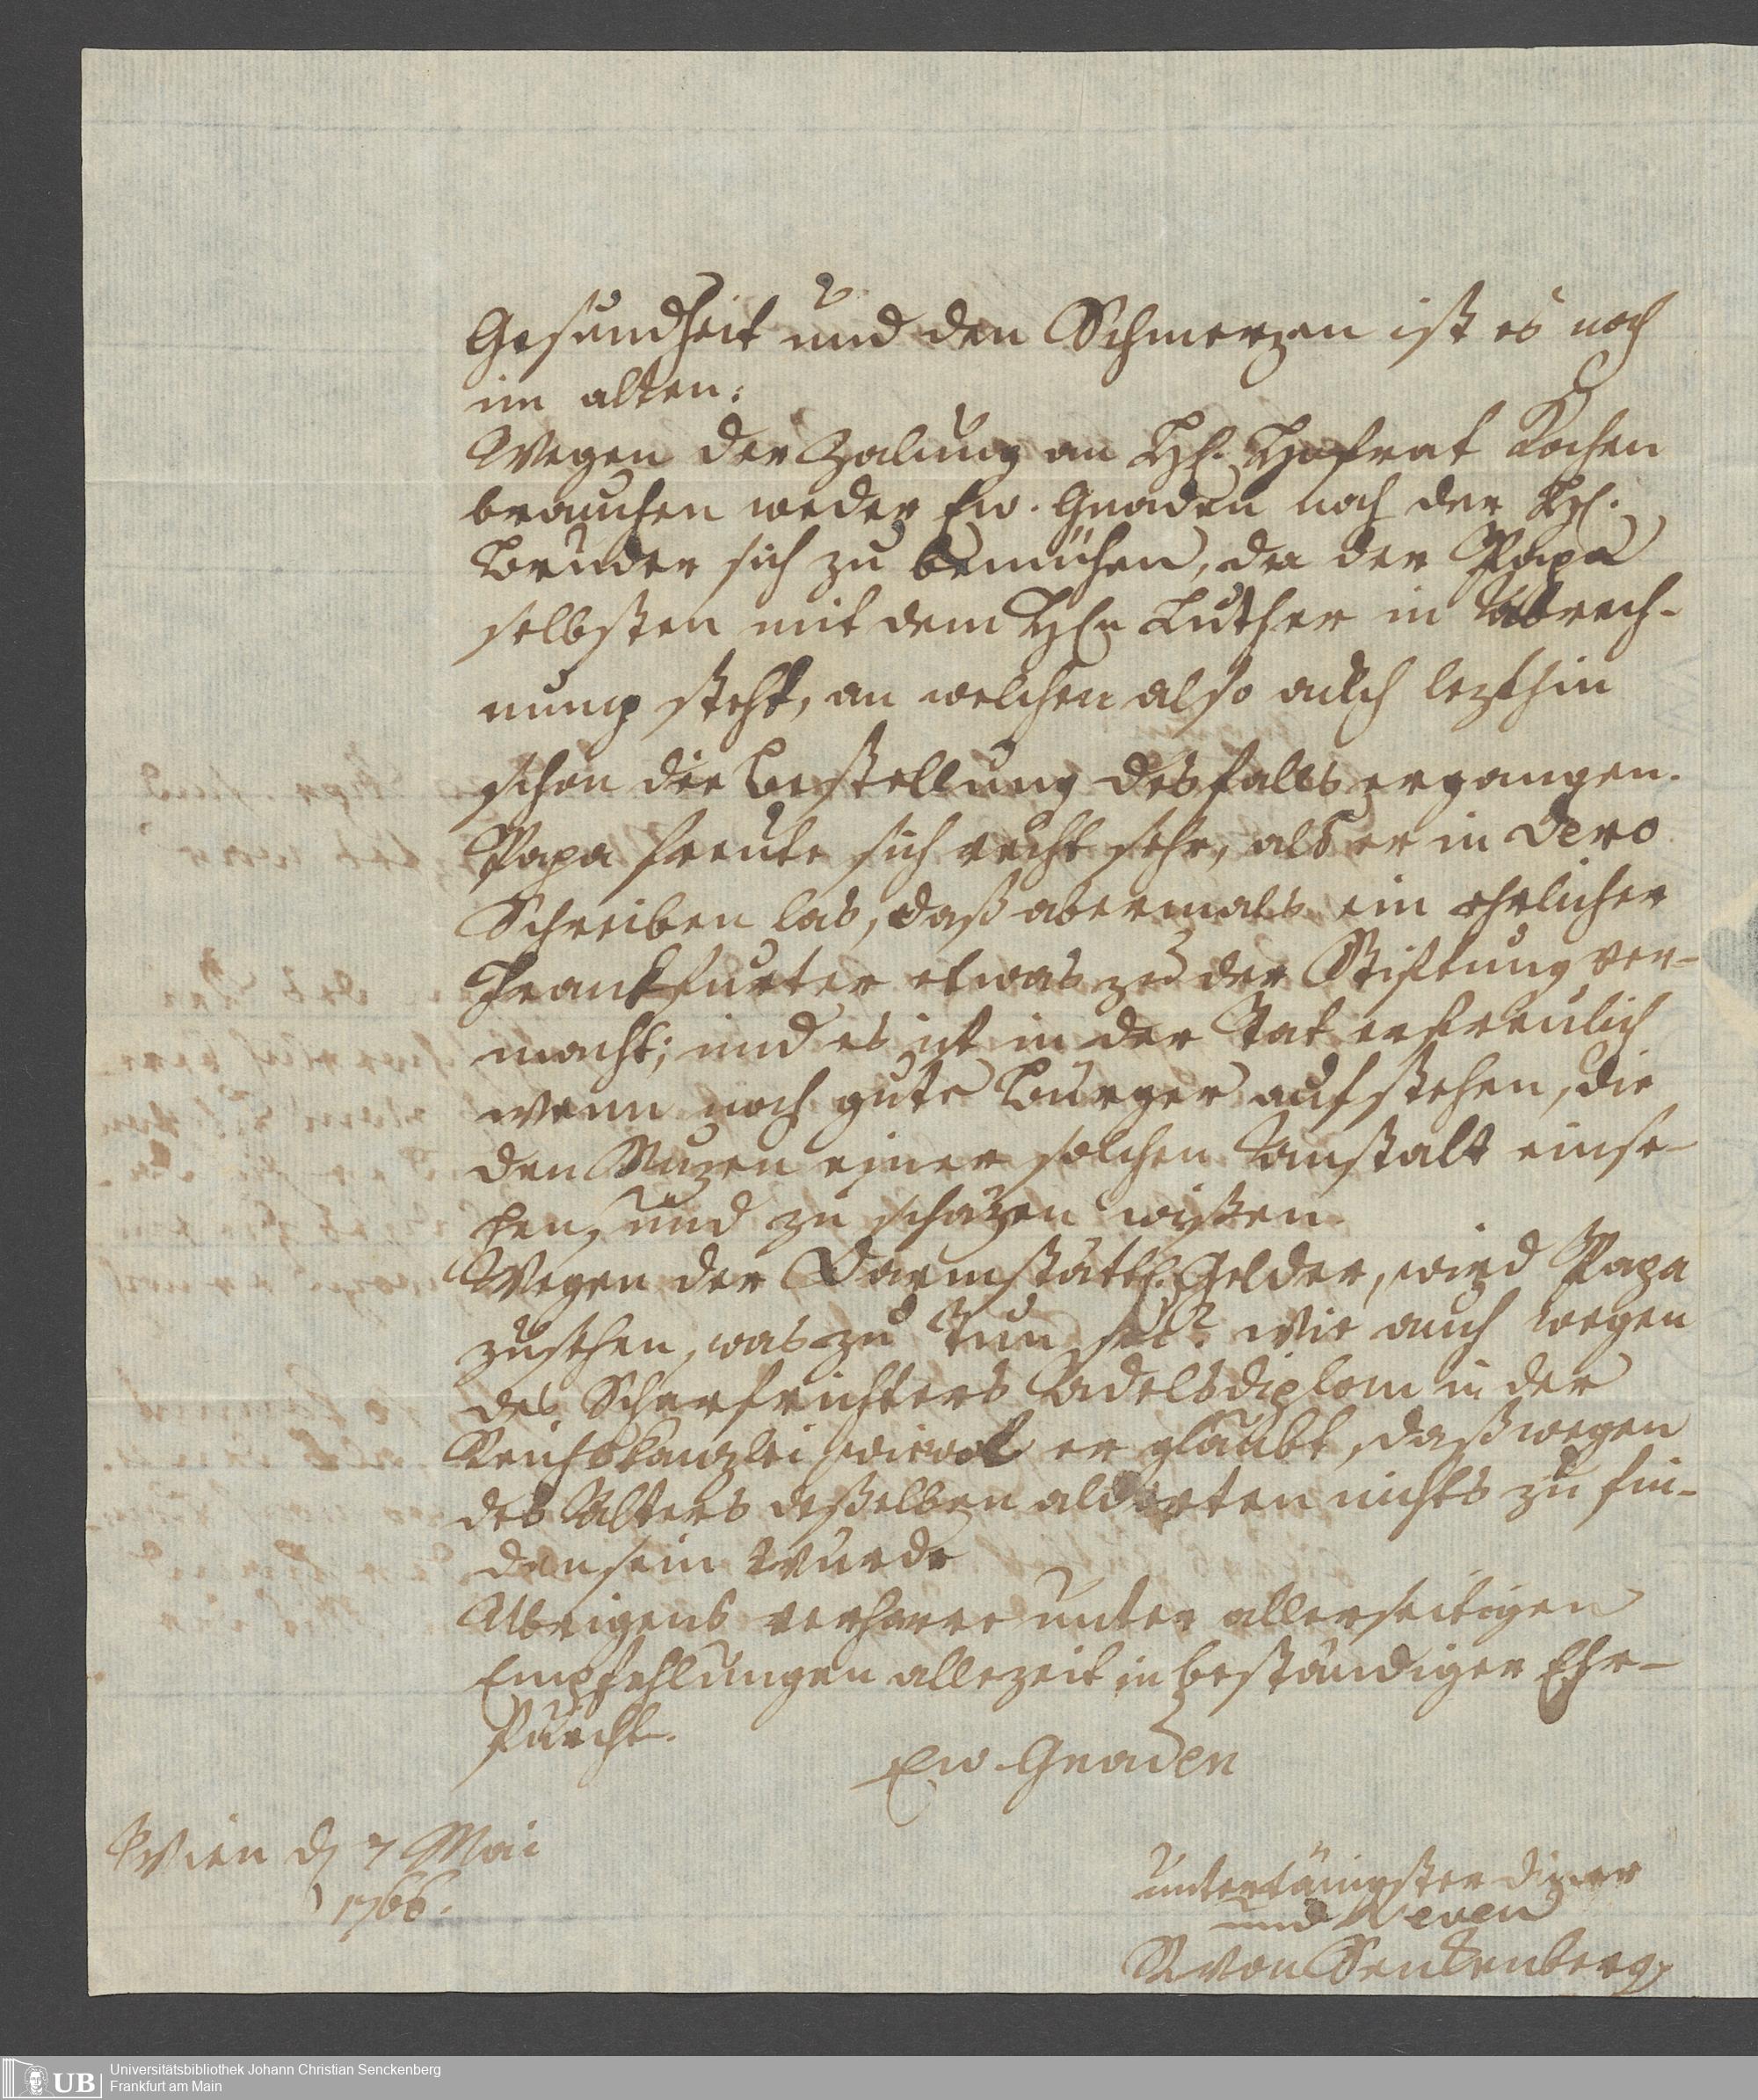 Gesundheit und den Schmerzen ist es noch
im alten.
Wegen der Zalung an H. Hofrat Kochen
brauchen weder Ew. Gnaden noch der H.
Bruder sich zu bemühen, da der Papa
selbsten mit dem Hn Luther in Abrech-
nung steht, an welchen also auch lezthin
schon die Bestellung desfalls ergangen.
Papa freute sich recht sehr, als er in Dero
Schreiben las, daß abermals ein ehrlicher
Frankfurter etwas zu der Stiftung ver-
macht; und es ist in der Tat erfreulich
wenn noch gute Bürger aufstehen, die
den Nuzen einer solchen Anstalt einse-
hen, und zu schäzen wißen.
Wegen der Darmstättl. Gelder, wird Papa
zusehen, was zu tun sei? wie auch wegen
des Scharfrichters Adelsdiplom in der
Reichskanzlei, wiewol er glaubt, daß wegen
des Alters deßelben aldorten nichts zu fin-
den sein würde
Übrigens verharre unter allerseitigen
Empfehlungen allezeit in beständiger Ehr-
furcht.
Ew. Gnaden
Wien d 7 Mai
1766.
untertänigster Diener
und Neveu
R von Senkenberg
UB
Universitätsbibliothek Johann Christian Senckenberg
Frankfurt am Main